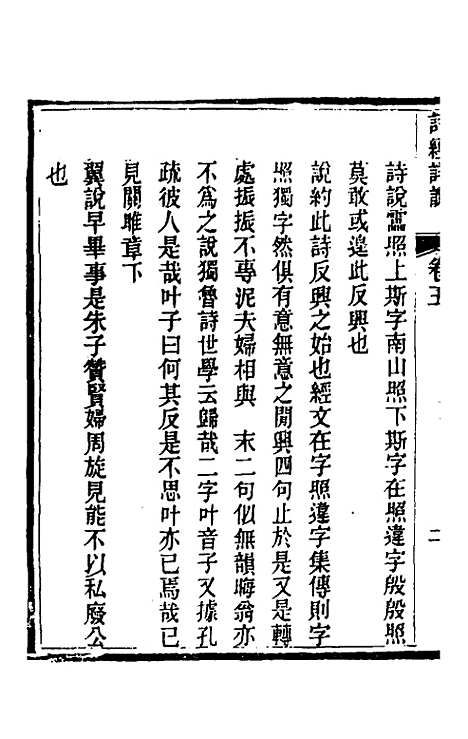 詩經詳說 卷五 二
詩說靁照上斯字南山照下斯字在照違字殷殷照
莫敢或遑此反興也
說約此詩反興之始也經文在字照違字集傳則字
照獨字然俱有意無意之閒興四句止於是又是轉
處振振不專泥夫婦相與 末二句似無韻晦翁亦
不爲之說獨魯詩世學云歸哉二字叶音子又據孔
疏彼人是哉叶子曰何其反是不思叶亦已焉哉已
見關雎章下
翼說早畢事是朱子贊賢婦周旋見能不以私廢公
也